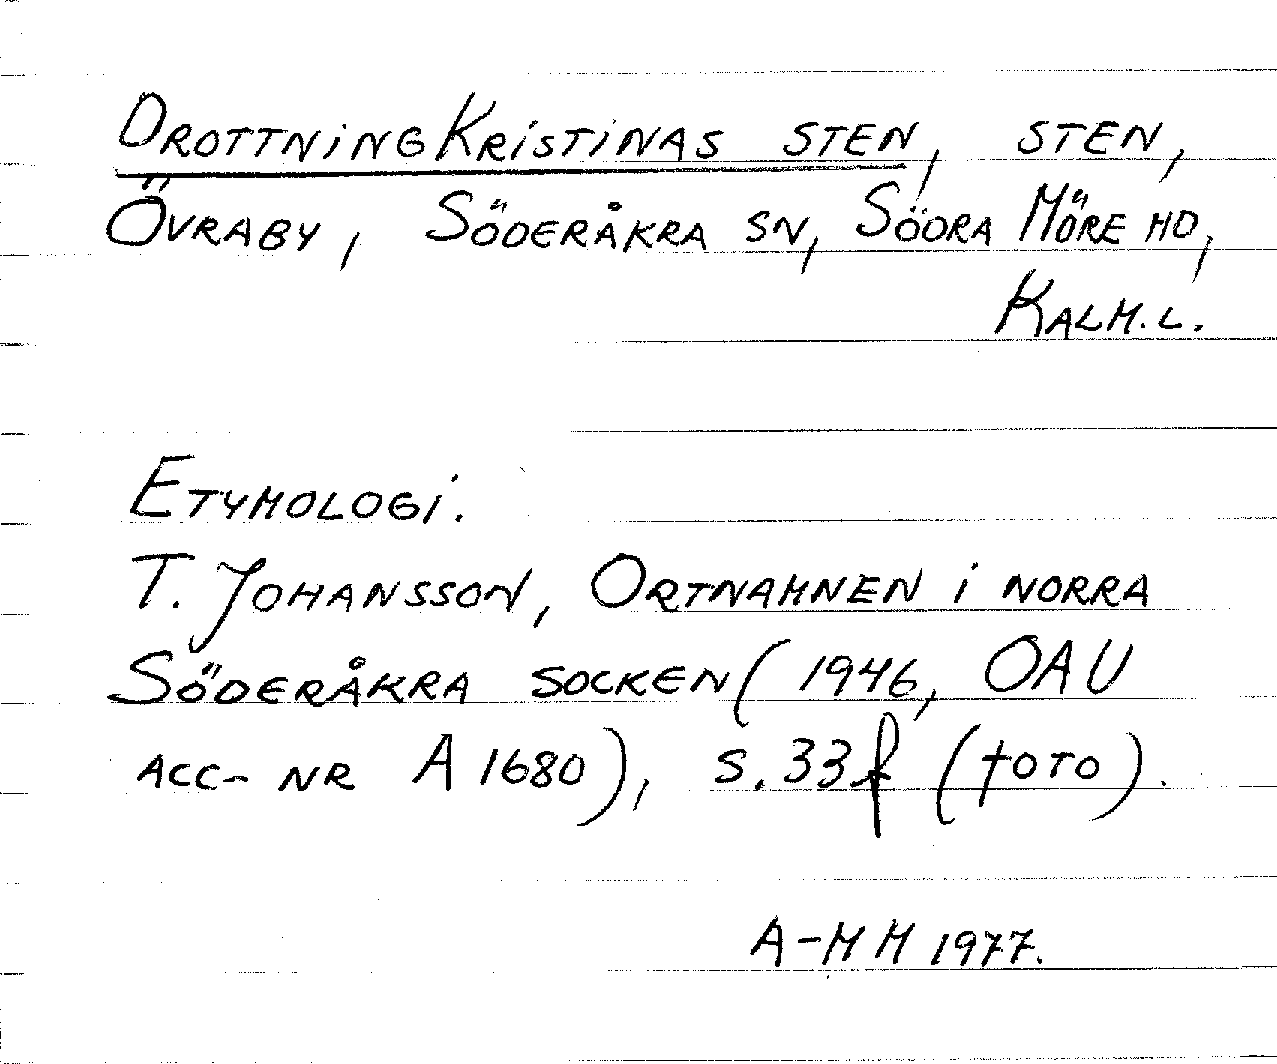 DROTTNING KRISTINAS STEN, STEN,
ÖVRABY, SÖDERÅKRA SN, SÖDRA MÖRE HD,
KALM.L.
ETYMOLOGI.
T. JOHANSSON, ORTNAMNEN I NORRA
SÖDERÅKRA SOCKEN (1946, OAU
ACC-NR A 1680), S. 33 f (FOTO).
A-M M 1977.